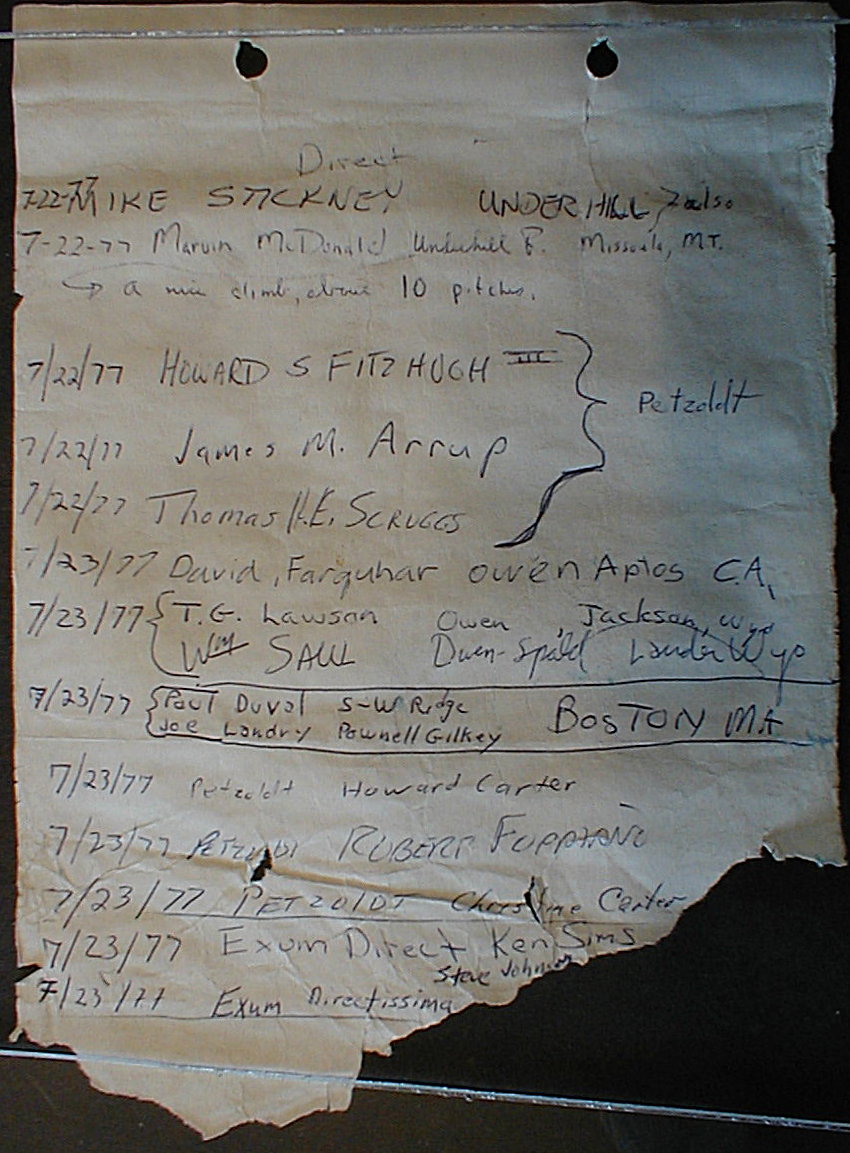 Direct
7-22-77 MIKE STICKNEY UNDERHILL,
7-22-77 Marvin McDonald Underhill R. Missoula, MT.
a nice climb, about 10 pitches.
7/22/77 HOWARD S FITZHUGH III
Petzoldt
7/22/77 James M. Arrup
7/22/77 Thomas H.E. SCRUGGS
7/23/77 David, Farquhar owen Aptos C.A,
7/23/77 T.G. Lawson Owen, Jackson, Wyo
Wm SAUL Owen-Spald Lander Wyo
7/23/77 Paul Duval S-W Ridge BOSTON MA
Joe Landry Pownell Gilkey
7/23/77 Petzoldt Howard Carter
7/23/77 PETZOLDT ROBERT FOPPIANO
7/23/77 PETZOLDT Christine Carter
7/23/77 Exum Direct Ken Sims
Steve Johnson
7/23/77 Exum Directissima